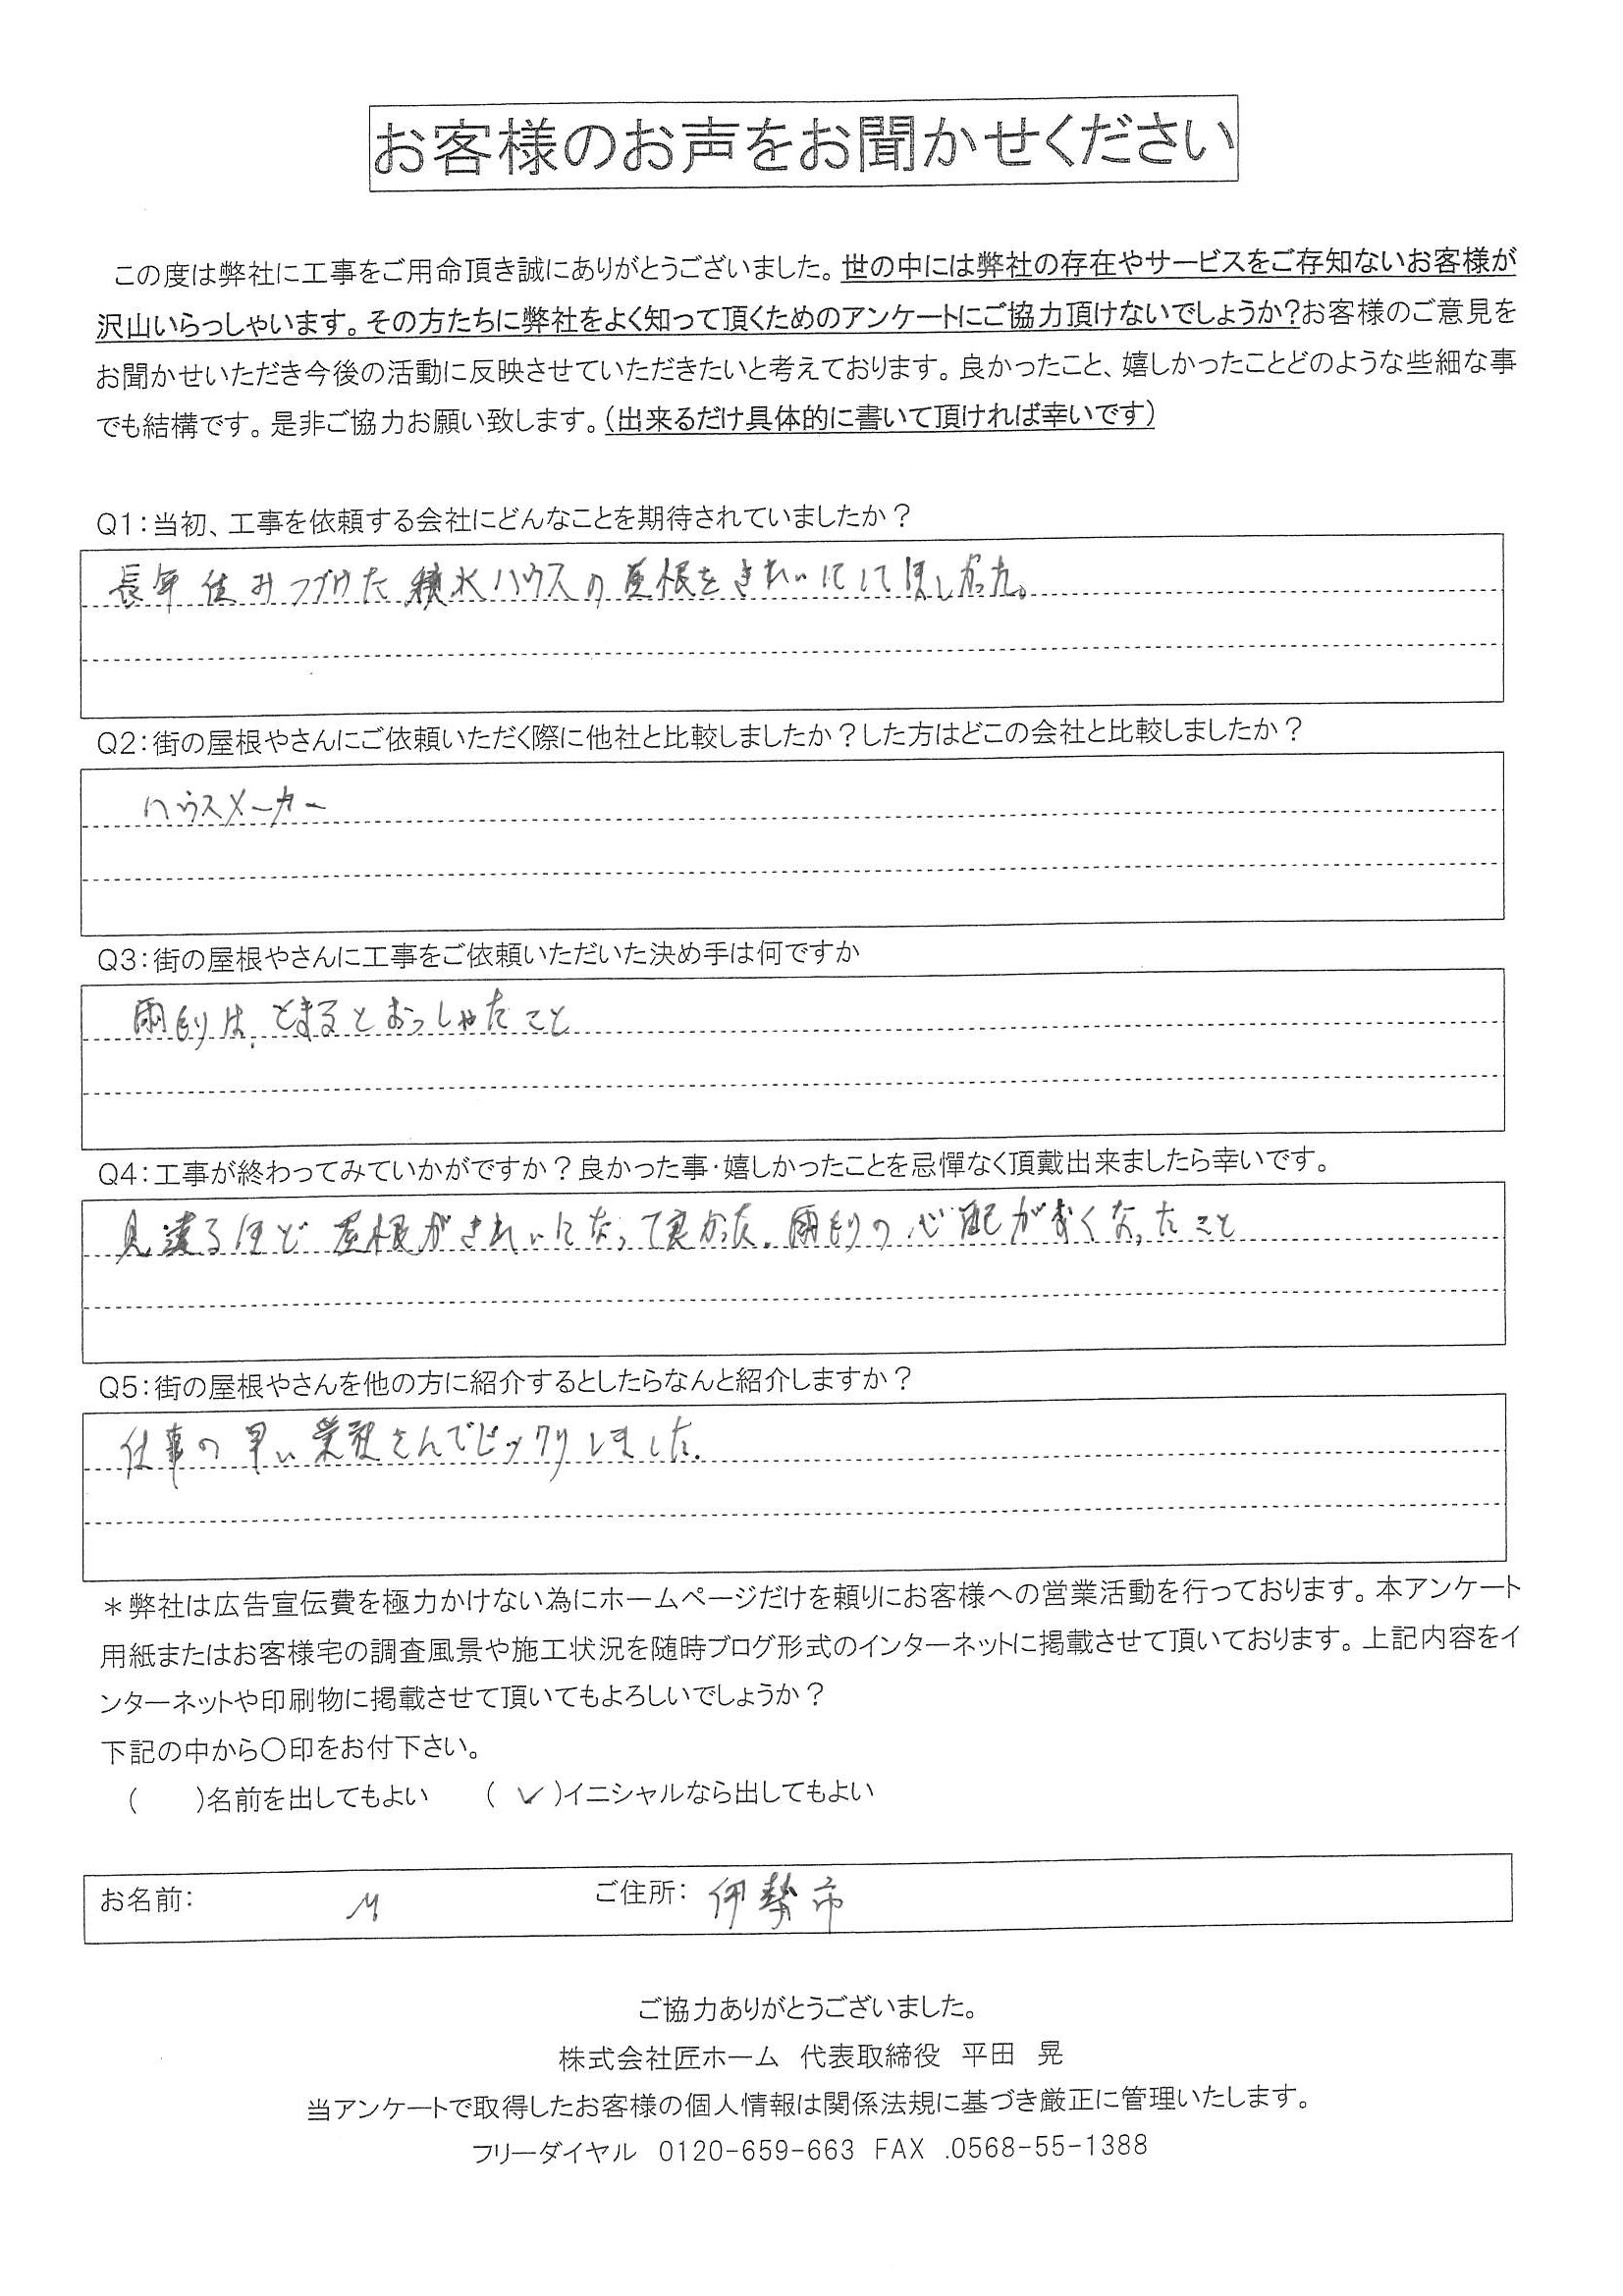 お客様のお声をお聞かせください
この度は弊社に工事をご用命頂き誠にありがとうございました。世の中には弊社の存在やサービスをご存知ないお客様が
沢山いらっしゃいます。その方たちに弊社をよく知って頂くためのアンケートにご協力頂けないでしょうか?お客様のご意見を
お聞かせいただき今後の活動に反映させていただきたいと考えております。良かったこと、嬉しかったことどのような些細な事
でも結構です。是非ご協力お願い致します。(出来るだけ具体的に書いて頂ければ幸いです)
Q1:当初、工事を依頼する会社にどんなことを期待されていましたか?
長年住みつづけた積水ハウスの屋根をきれいにしてほしかった。
Q2:街の屋根やさんにご依頼いただく際に他社と比較しましたか?した方はどこの会社と比較しましたか?
ハウスメーカー
Q3:街の屋根やさんに工事をご依頼いただいた決め手は何ですか
雨もりは、とまるとおっしゃたこと
Q4:工事が終わってみていかがですか?良かった事・嬉しかったことを忌憚なく頂戴出来ましたら幸いです。
見違るほど屋根がきれいになって良かった。雨もりの心配がなくなったこと
Q5:街の屋根やさんを他の方に紹介するとしたらなんと紹介しますか?
仕事の早い業者さんでビックリしました。
*弊社は広告宣伝費を極力かけない為にホームページだけを頼りにお客様への営業活動を行っております。本アンケート
用紙またはお客様宅の調査風景や施工状況を随時ブログ形式のインターネットに掲載させて頂いております。上記内容をイ
ンターネットや印刷物に掲載させて頂いてもよろしいでしょうか?
下記の中から〇印をお付下さい。
(　　)名前を出してもよい　(✓)イニシャルなら出してもよい
お名前: M ご住所: 伊勢市
ご協力ありがとうございました。
株式会社匠ホーム 代表取締役 平田 晃
当アンケートで取得したお客様の個人情報は関係法規に基づき厳正に管理いたします。
フリーダイヤル 0120-659-663 FAX .0568-55-1388